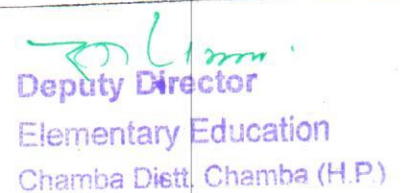 Deputy Director
Elementary Education
Chamba Distt. Chamba (H.P.)